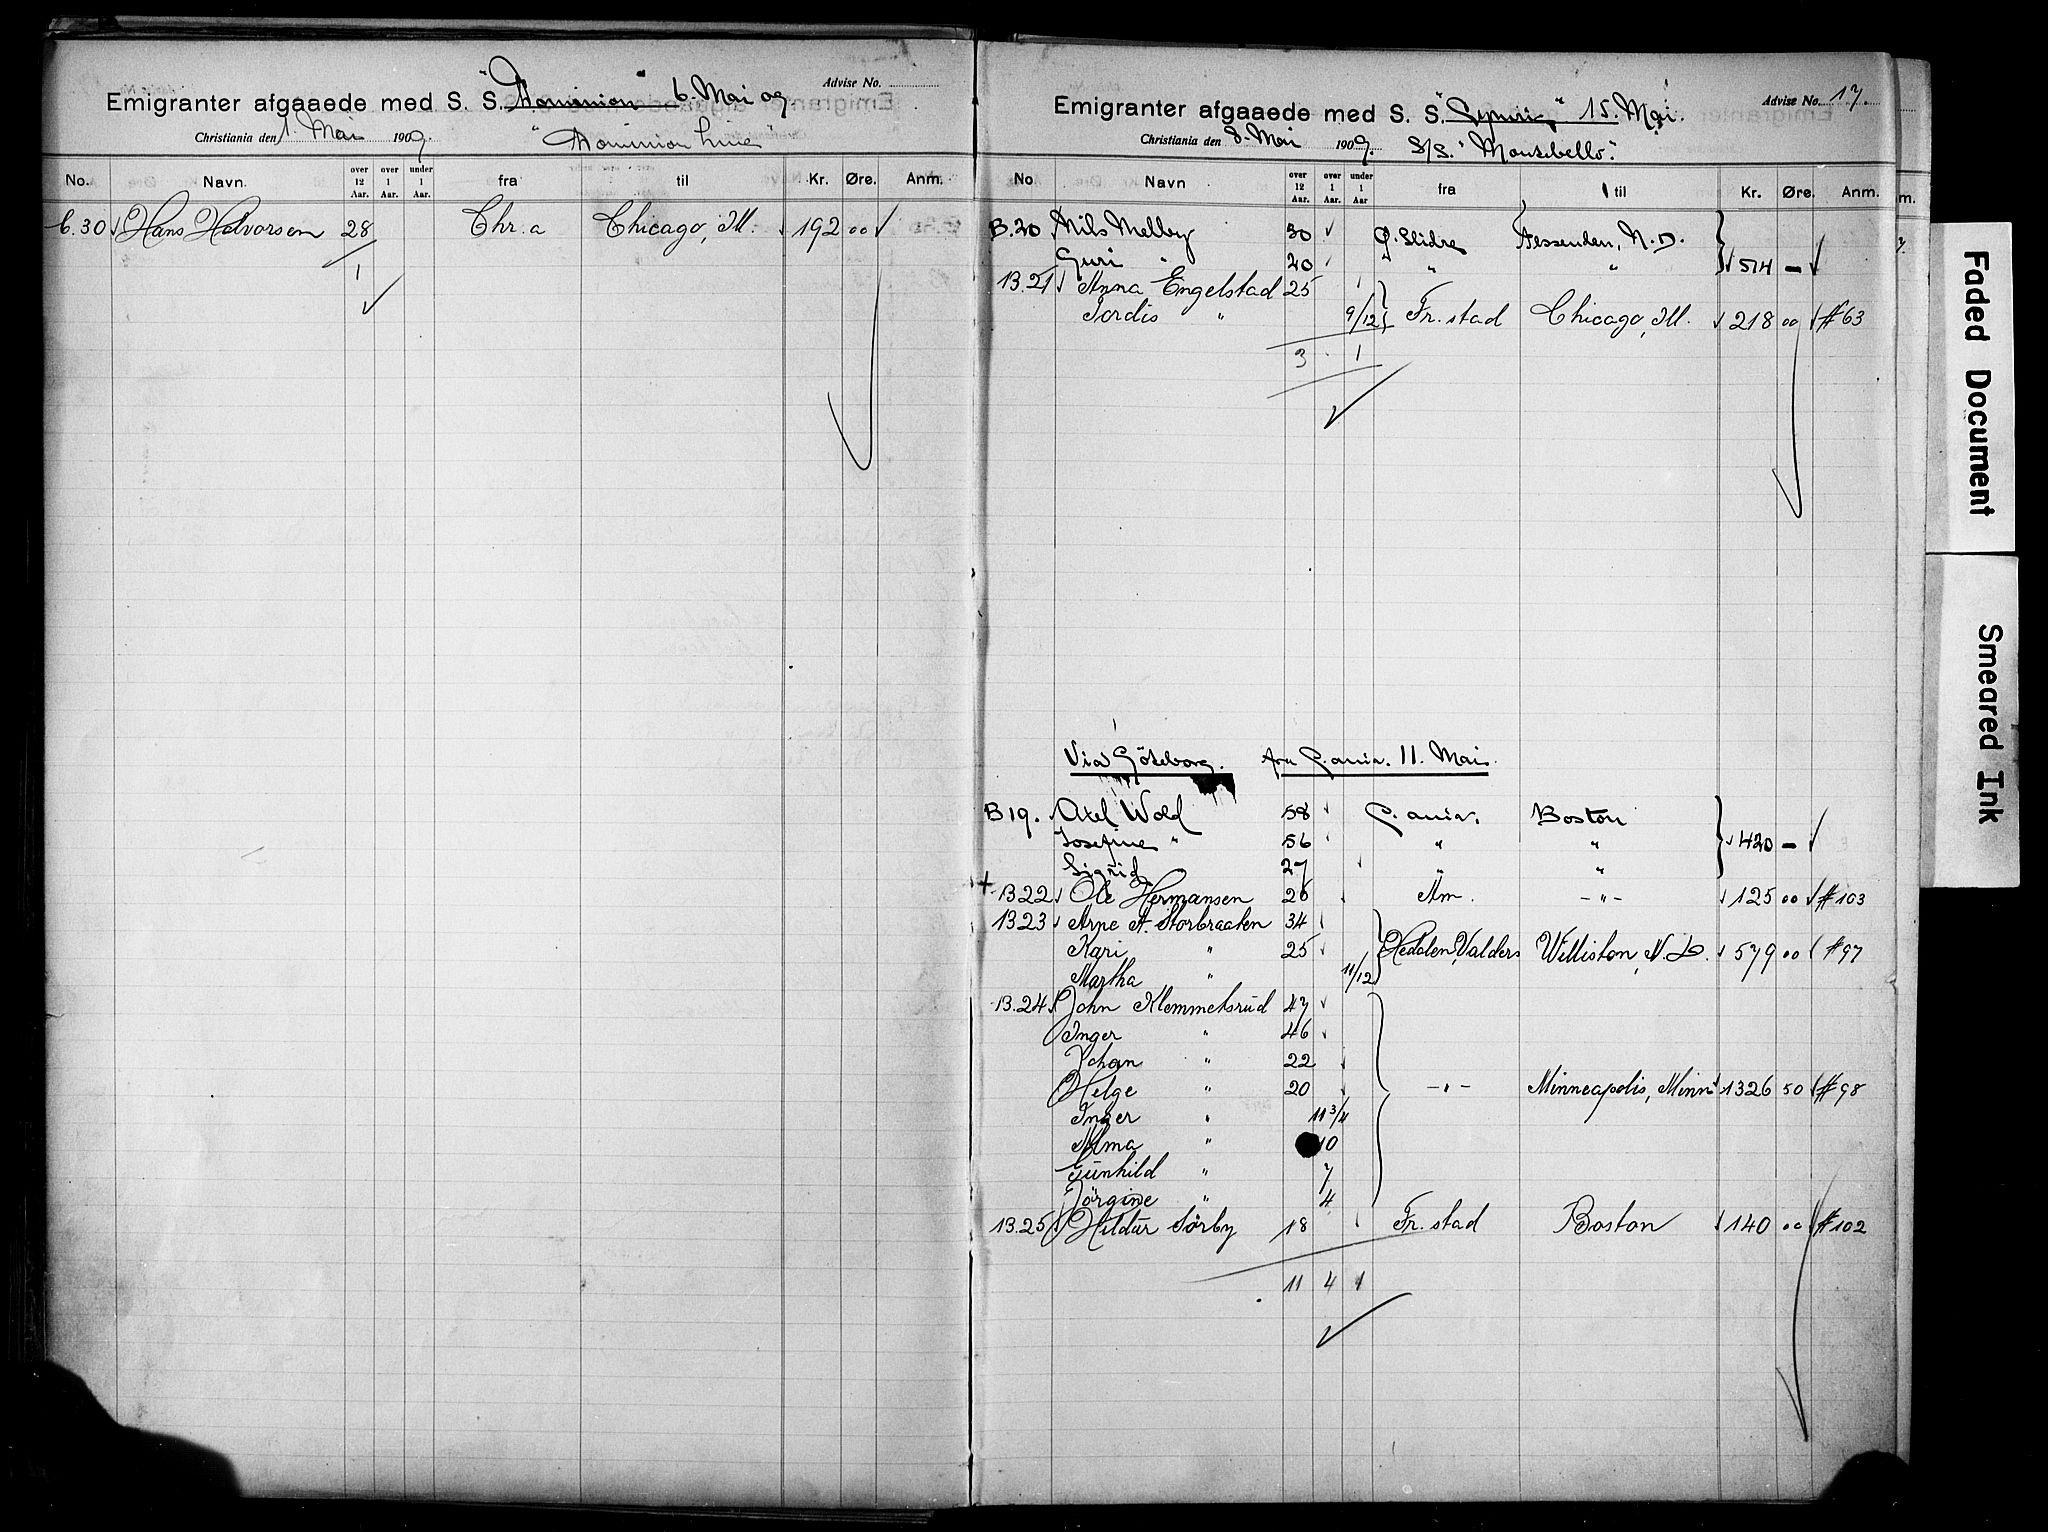 Advise No.
Emigranter afgaaede med S. S. "Dominion" 6. Mai og
Christiania den 1. Mai 1909. "Dominion Linie"
No. Navn. over 12 Aar. over 1 Aar. under 1 Aar. fra til Kr. Øre. Anm.
6.30 Hans Halvorsen 28 Chr.a Chicago, Ill. 192 00
1
Advise No. 17.
Emigranter afgaaede med S. S. 15. Mai.
Christiania den 8. Mai 1909. S/S. "Montebello".
No Navn over 12 Aar. over 1 Aar. under 1 Aar fra til Kr. Øre. Anm.
B.20 Nils Melby 30 Ø. Slidre Fessenden, N.D.
Guri " 20 " " 514 —
B.21 Anna Engelstad 25
Jordis " 9/12 Fr.stad Chicago, Ill. 218 00 #63
3 1
Via Göteborg. fra C.ania. 11. Mai.
B19. Axel Wold 58 C.ania. Boston
Josefine " 56 " " 420 —
Sigrid 27 " "
+ B.22 Ole Hermansen 26 Am. -"- 125 00 #103
B.23 Arne A. Storbraaten 34
Kari " 25 Hedalen, Valders Williston, N.D. 579 00 #97
Martha " 11/12
B.24 John Klemmetsrud 47
Inger " 46
Johan " 22
Helge " 20 -"- Minneapolis, Minn 1326 50 #98
Inger " 11 3/4
Alma " 10
Gunhild " 7
Jörgine " 4
B.25 Hildur Sørby 18 Fr.stad Boston 140 00 #102
11 4 1
Faded Document
Smeared Ink
m.